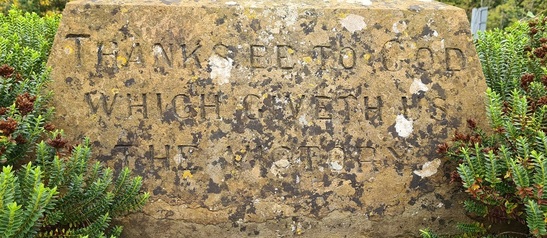 THANKS BE TO GOD
WHICH GIVETH US
THE VICTORY